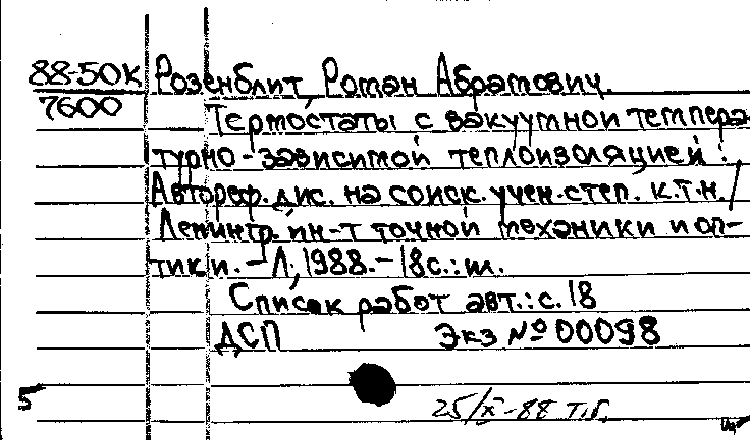 88-50К Розенблит, Роман Абрамович.
7600 Термостаты с вакуумной темпера
турно-зависимой теплоизоляцией:
Автореф. дис. на соиск. учен. степ. к.т.н. /
Ленингр. ин-т точной механики и оп-
тики. - Л., 1988. - 18с.: ил.
Список работ авт.: с. 18
ДСП Экз № 00098
5
25/X-88 т.г.